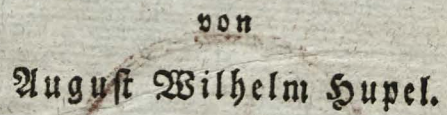 von
Auguſt Wilhelm Hupel.